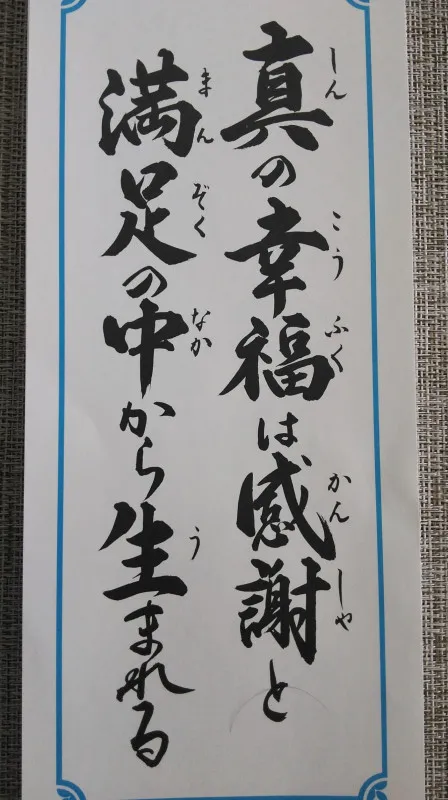 真の幸福は感謝と
しん こう ふく かん しゃ
満足の中から生まれる
まん ぞく なか う